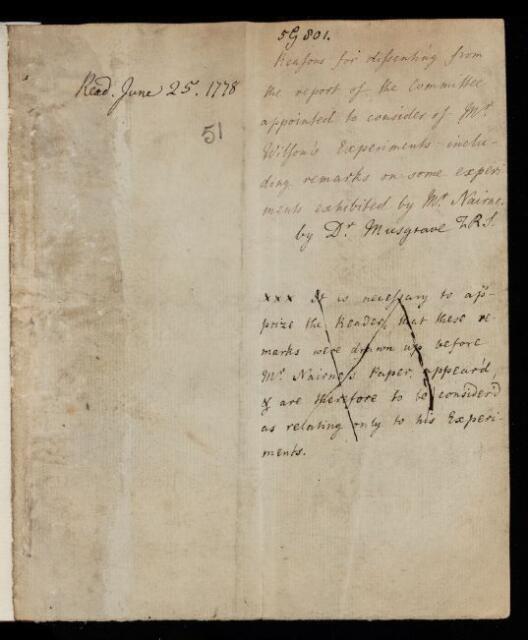 5G 801.
Read. June 25. 1778
51
Reasons for dissenting from
the report of the Committee
appointed to consider of Mr.
Wilson's Experiments inclu-
ding remarks on some experi
ments exhibited by Mr. Nairne.
by Dr. Musgrave F.R.S.
xxx It is necessary to ap-
prize the Reader, that these re
marks were drawn up before
Mr. Nairne's Paper appear'd,
& are therefore to be consider'd
as relating only to his Experi-
ments.